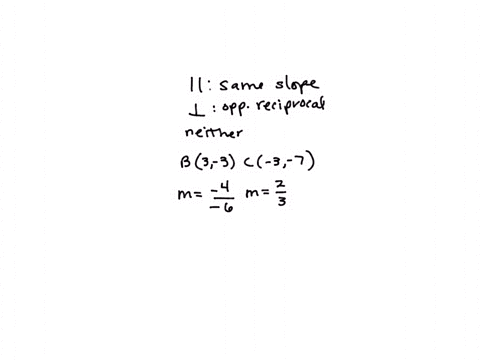 ||: same slope
⊥: opp. reciprocal
neither
B(3,-3) C(-3,-7)
m= -4/-6 m= 2/3